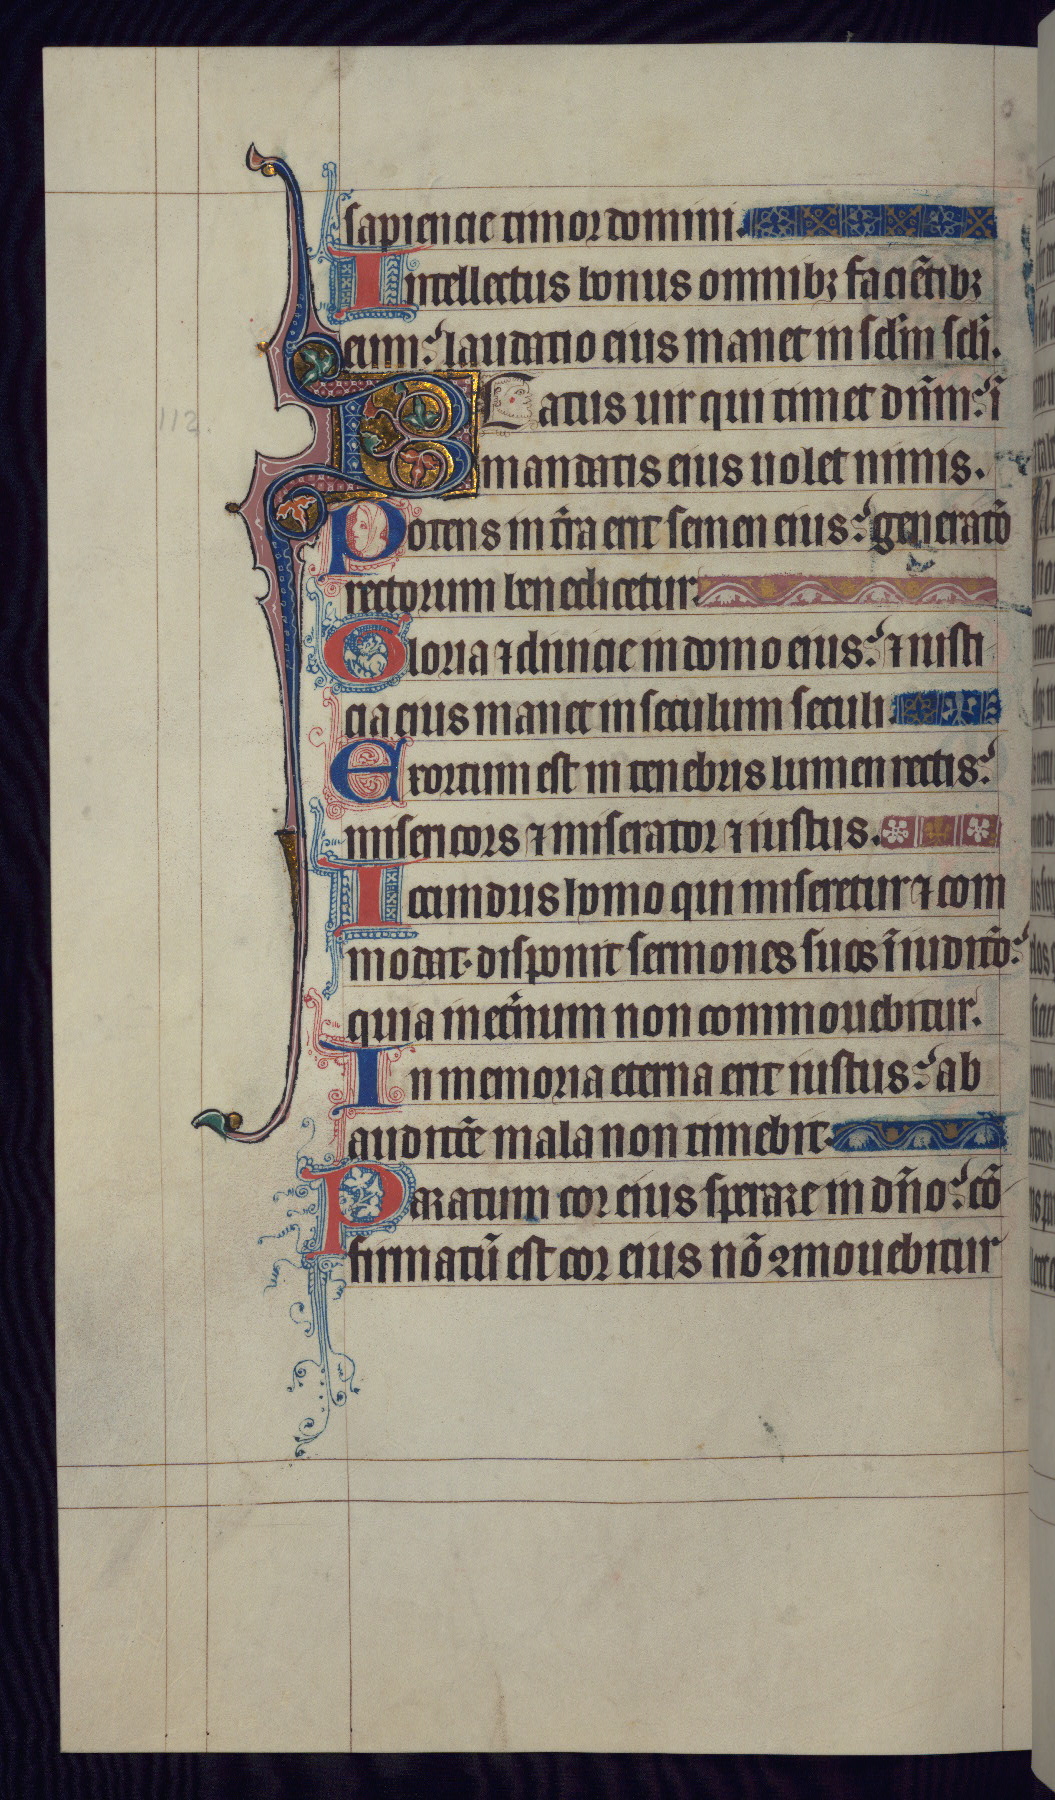 sapiencie timor domini.
Intellectus bonus omnibꝫ faciẽtibꝫ
eum: laudatio eius manet in sclm̃ scli̾.
BEatus uir qui timet dñm: ĩ
mandatis eius uolet nimis.
Potens in tr̃a erit semen eius: generatõ
rectorum benedicetur.
Gloria ⁊ diuicie in domo eius: ⁊ iusti
cia eius manet in seculum seculi.
Exortum est in tenebris lumen rectis:
misericors ⁊ miserator ⁊ iustus.
Iocundus homo qui miseretur ⁊ com
modat. disponit sermones suos ĩ iuditio̾:
quia in et̾num non commouebitur.
In memoria eterna erit iustus: ab
auditiõe mala non timebit.
Paratum cor eius sperare in dño: cõ
firmatũ est cor eius nõ ꝯmouebitur
112.